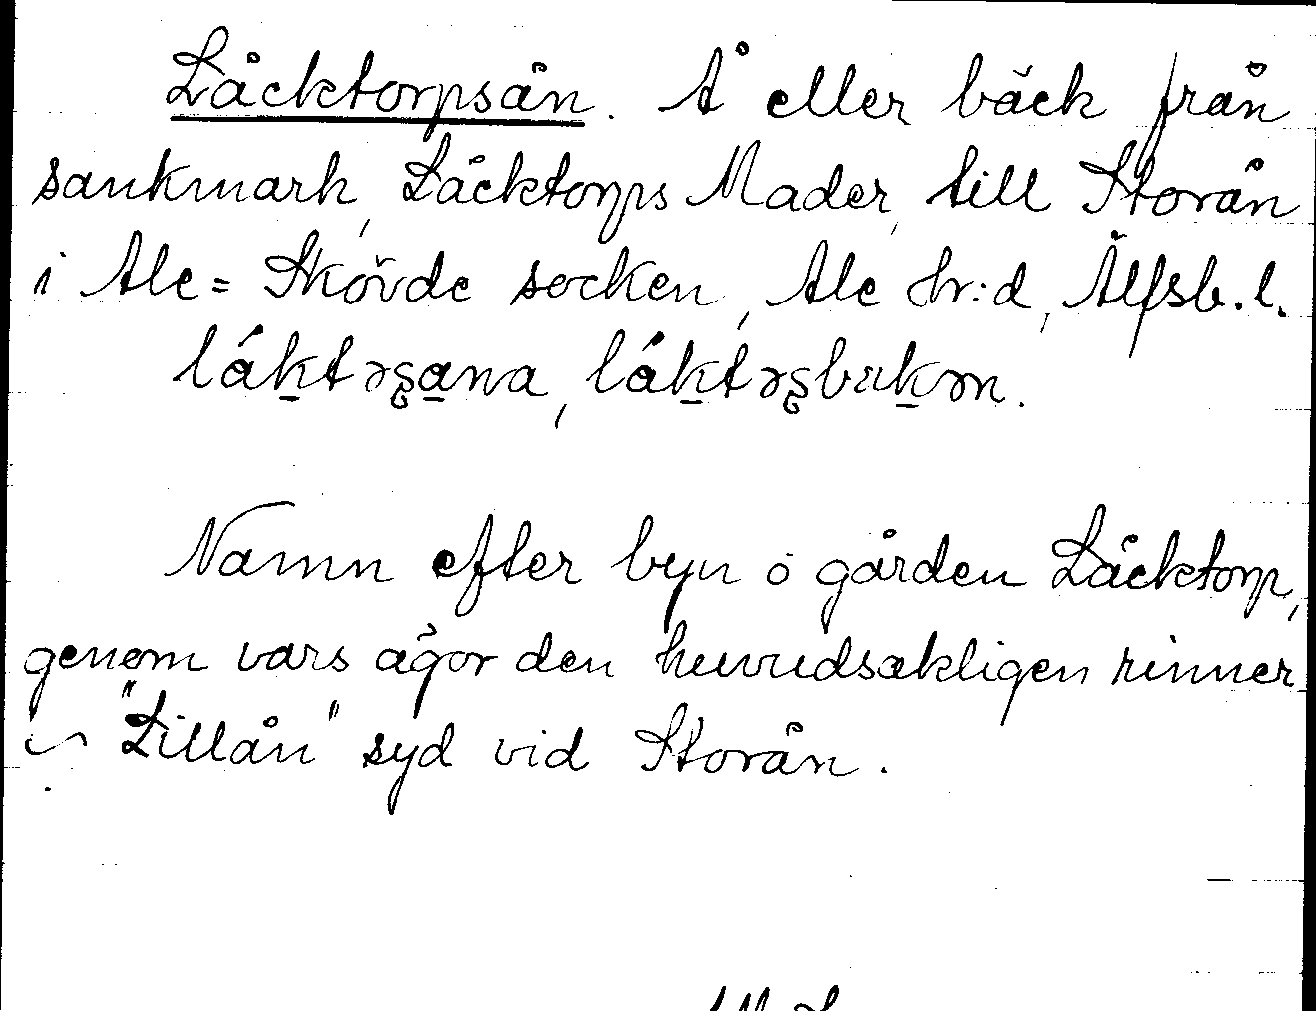 Läcktorpsån. Å eller bäck från
sankmark, Läcktorps Mader, till Storån
i Ale=Skövde socken, Ale hr:d, Älfsb. l.
láktəʂana, láktəʂbækən.
Namn efter byn o gården Läcktorp,
genom vars ägor den huvudsakligen rinner
"Lillån" syd vid Storån.